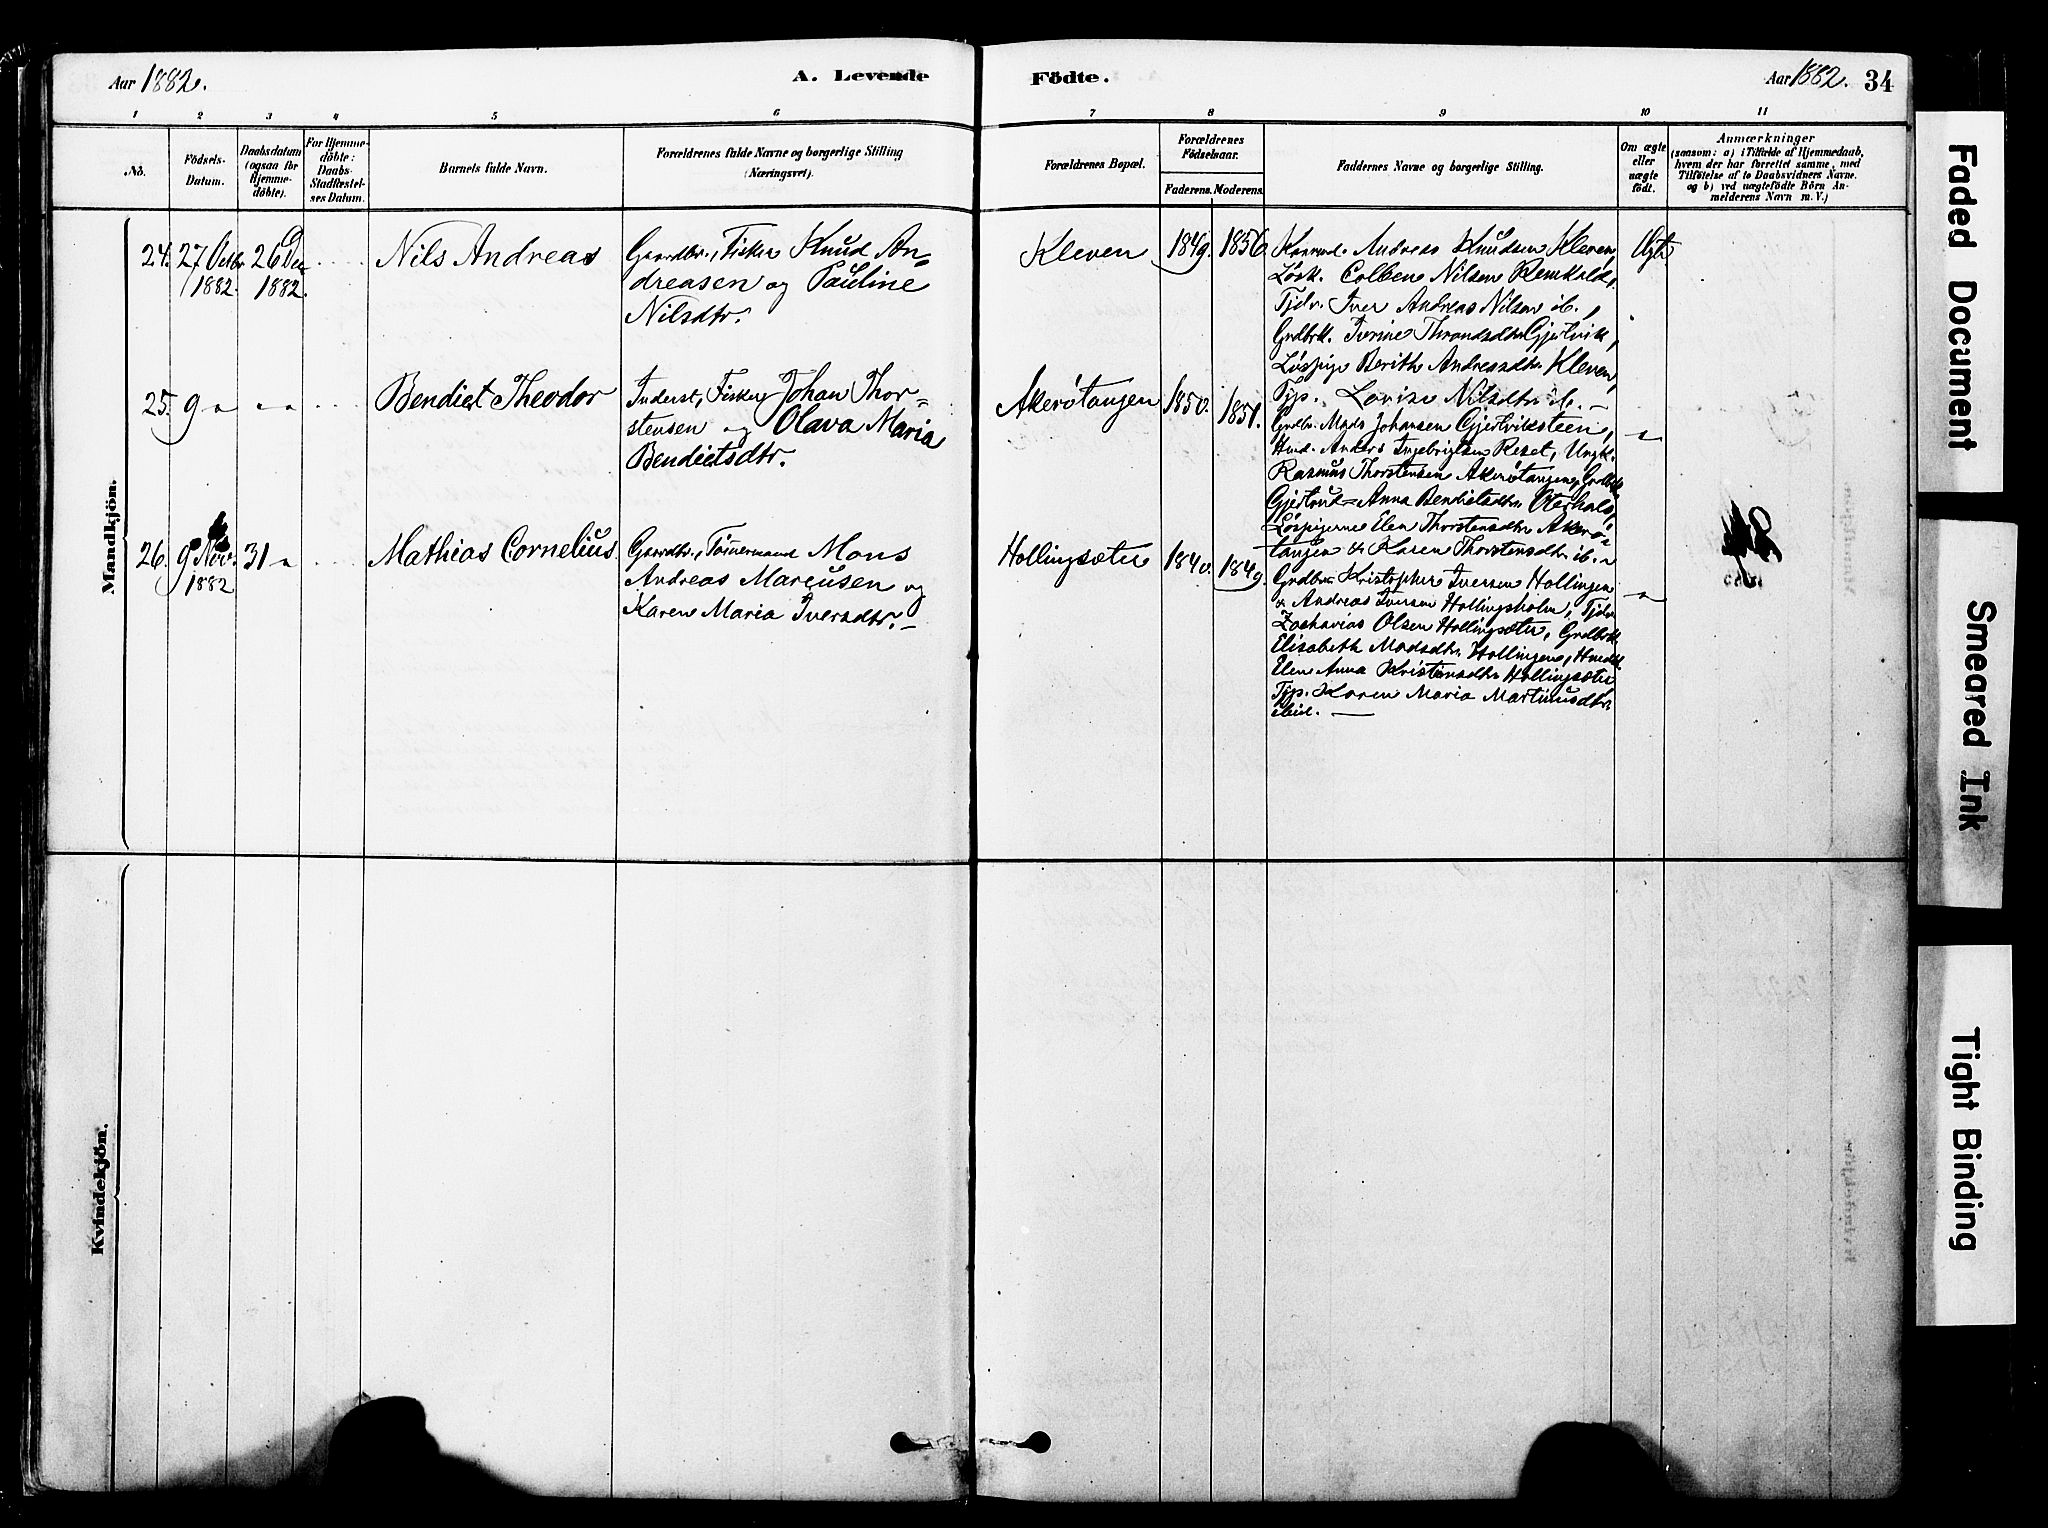 Aar 1882.
A. Levende
Födte.
Aar 1882. 34
1 2 3 4 5 6 7 8 9 10 11
No.
Födsels-
Datum.
Daabsdatum
(ogsaa for
Hjemme-
döbte).
For Hjemme-
döbte:
Daabs-
Stadfæstel-
ses Datum.
Barnets fulde Navn.
Forældrenes fulde Navne og borgerlige Stilling
(Næringsvei).
Forældrenes Bopæl.
Forældrenes
Födselsaar.
Faderens. Moderens.
Faddernes Navne og borgerlige Stilling.
Om ægte
eller
uægte
födt.
Anmærkninger
(saasom: a) i Tilfælde af Hjemmedaab,
hvem der har forrettet samme, med
Tilföielse af to Daabsvidners Navne,
og b) ved uægtefödte Börn An-
melderens Navn m. V.)
Mandkjön.
24.
27 Octbr
1882.
26 Dec
1882.
Nils Andreas
Gaardbr., Fisker Knud An=
dreasen og Pauline
Nilsdtr.
Kleven
1849. 1856.
Andreas Knudsen Kleven,
Løsk. Colben Nilsen
Tjdr. Iver Andreas Nilsen ib.,
Grdbrk. Iverine Throndsdtr Gjertvik,
Løspige Berith Andreasdtr Kleven,
Tjp. Lovise Nilsdtr ib. —
Ægte
25.
9 "
" "
Bendict Theodor
Inderst, Fisker Johan Thor=
stensen og Olava Maria
Bendictsdtr.
Akerötangen
1850. 1851.
Grdbr. Mads Johansen Gjertviksteen,
Hmd. Anders Ingebrigtsen Reset, Ungk.
Rasmus Thorstensen Akerötangen, Grdbrk.
Anna Bendictsdtr Oterhals,
Löspigerne Elen Thorstensdtr Akerö-
tangen & Karen Thorstensdtr ib.
"
26.
9 Nov.
1882
31 "
Mathias Cornelius
Gaardbr., Tömmermand Mons
Andreas Marcusen og
Karen Maria Iversdtr. —
Hollingsæter
1840. 1849.
Grdbr. Kristopher Iversen Hollingen
& Andreas Iversen Hollingsholm, Tjdr.
Zacharias Olsen Hollingsæter, Grdbrk.
Elisabeth Madsdtr. Hollingen, Hmdk.
Elen Anna Kristensdtr Hollingsæter
Tjp. Karen Maria Martinusdtr.
ibid. —
"
Kvindekjön.
Faded Document
Smeared Ink
Tight Binding